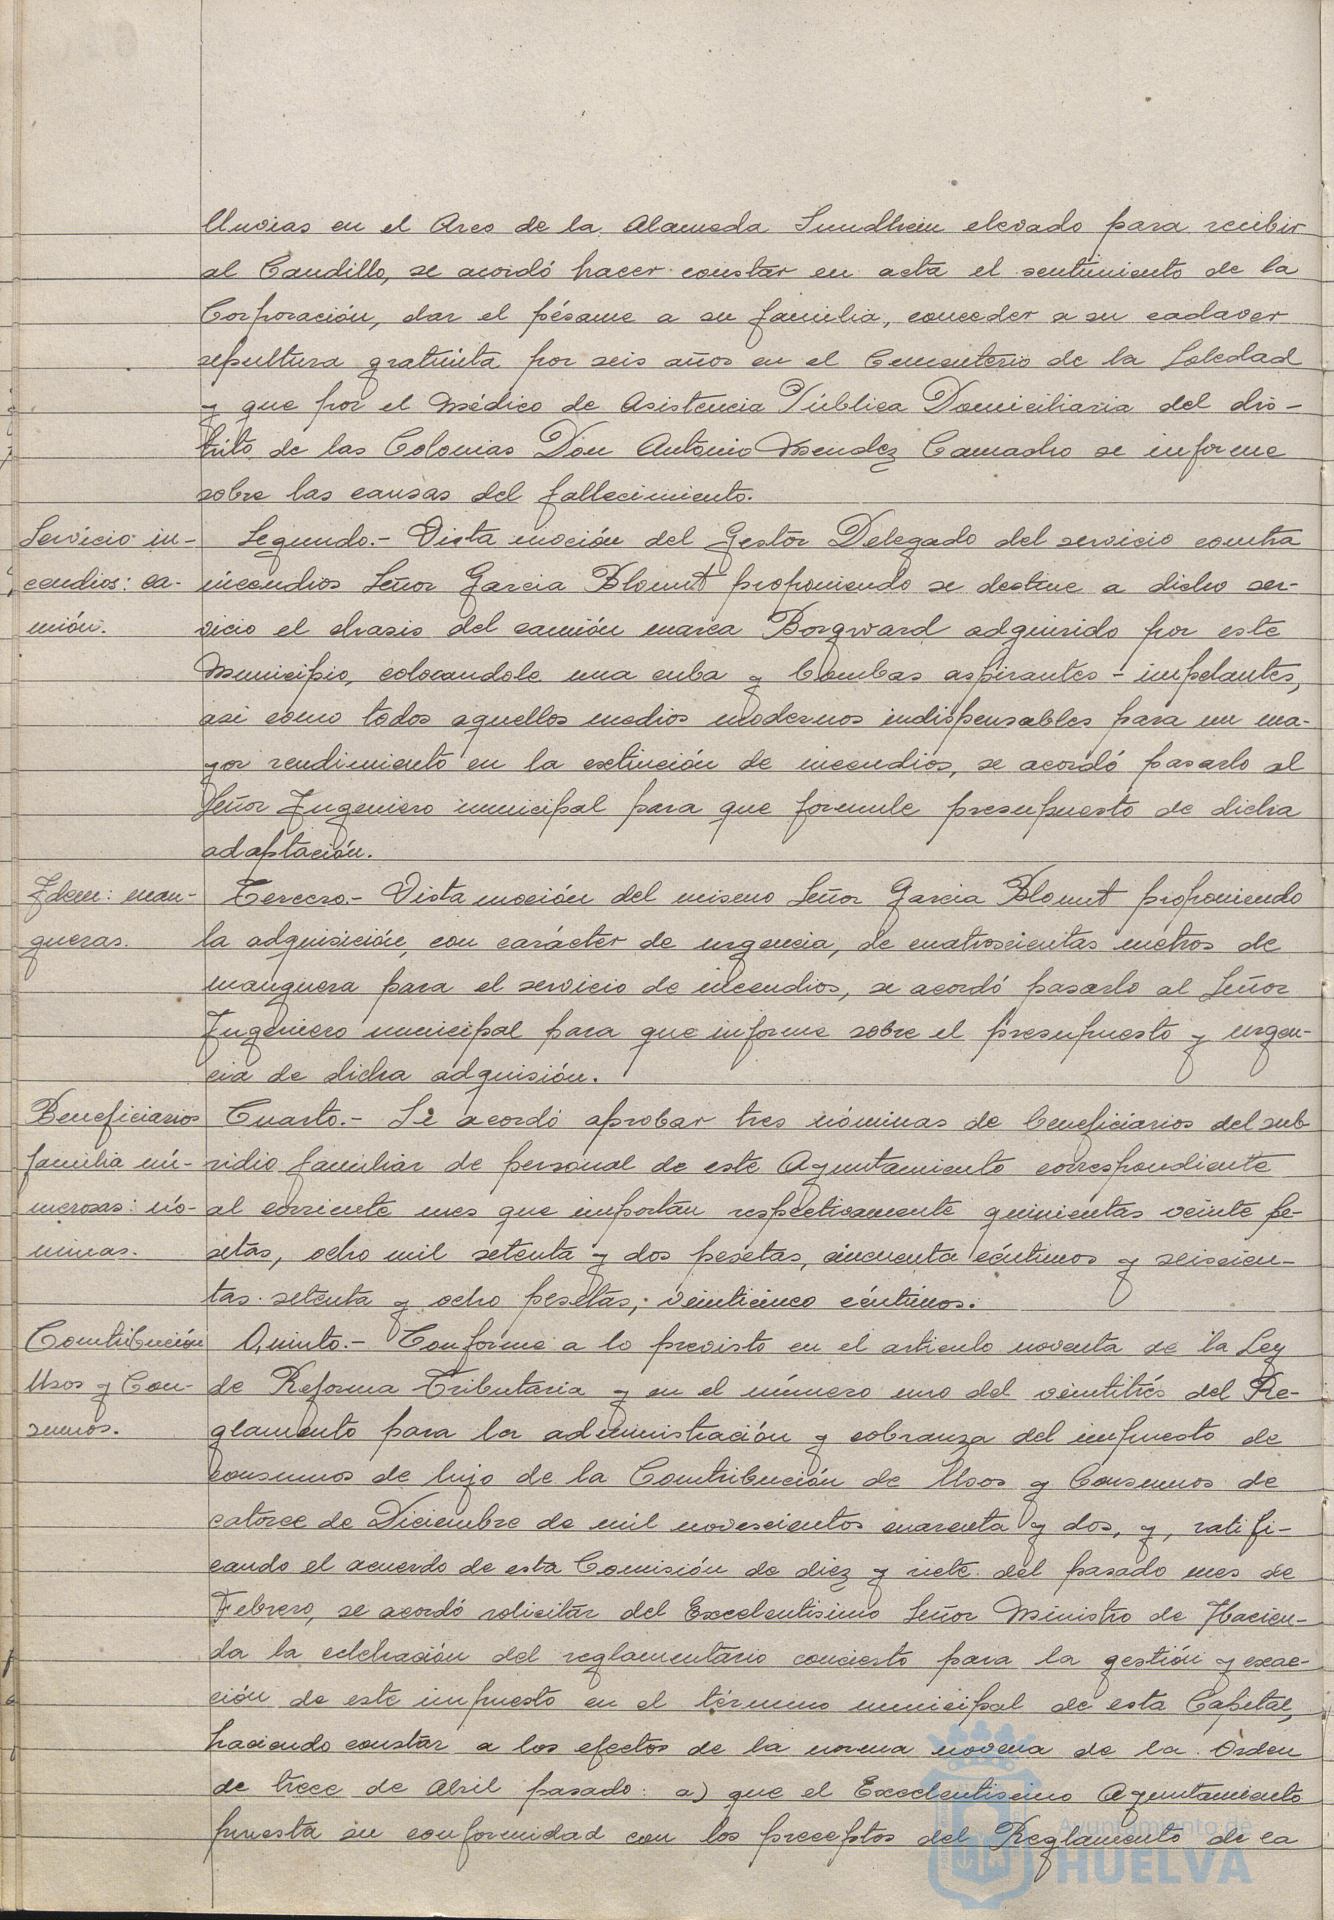 lluvias en el Arco de la Alameda Sundheim elevado para recibir
al Caudillo, se acordó hacer constar en acta el sentimiento de la
Corporación, dar el pésame a su familia, conceder a su cadaver
sepultura gratuita por seis años en el Cementerio de la Soledad
y que por el Médico de Asistencia Pública Domiciliaria del dis-
trito de las Colonias Don Antonio Mendez Camacho se informe
sobre las causas del fallecimiento.
Servicio in-
cendios: ca-
mión.
Segundo.- Vista moción del Gestor Delegado del servicio contra
incendios Señor Garcia Blomut proponiendo se destine a dicho ser-
vicio el chasis del camión marca Borgward adquirido por este
Municipio, colocandole una cuba y bombas aspirantes-impelantes,
asi como todos aquellos medios modernos indispensables para un ma-
yor rendimiento en la extinción de incendios, se acordó pasarlo al
Señor Ingeniero municipal para que formule presupuesto de dicha
adaptación.
Idem: man-
gueras.
Tercero.- Vista moción del mismo Señor Garcia Blomut proponiendo
la adquisición, con carácter de urgencia, de cuatroscientas metros de
manguera para el servicio de incendios, se acordó pasarlo al Señor
Ingeniero municipal para que informe sobre el presupuesto y urgen-
cia de dicha adquisión.
Beneficiarios
familia nú-
merosas: nó-
minas.
Cuarto.- Se acordó aprobar tres nóminas de beneficiarios del sub
sidio familiar de personal de este Ayuntamiento correspondiente
al corriente mes que importan respectivamente quinientas veinte pe-
setas, ocho mil setenta y dos pesetas, cincuenta céntimos y seiscien-
tas setenta y ocho pesetas, veinticinco céntimos.
Contribución
Usos y Con-
sumos.
Quinto.- Conforme a lo previsto en el articulo noventa de la Ley
de Reforma Tributaria y en el número uno del veintitrés del Re-
glamento para la administración y cobranza del impuesto de
consumos de lujo de la Contribución de Usos y Consumos de
catorce de Diciembre de mil novescientos cuarenta y dos, y, ratifi-
cando el acuerdo de esta Comisión de diez y siete del pasado mes de
Febrero, se acordó solicitar del Excelentisimo Señor Ministro de Hacien-
da la celebración del reglamentario concierto para la gestión y exac-
ción de este impuesto en el término municipal de esta Capital,
haciendo constar a los efectos de la norma novena de la Orden
de trece de Abril pasado: a) que el Excelentisimo Ayuntamiento
presta su conformidad con los preceptos del Reglamento de la
Ayuntamiento de
HUELVA